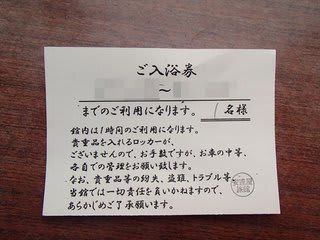 ご入浴券
～
までのご利用になります。 1名様
館内は1時間のご利用になります。
貴重品を入れるロッカーが、
ございませんので、お手数ですが、お車の中等、
各自での管理をお願い致します。
なお、貴重品等の紛失、盗難、トラブル等、
当館では一切責任を負いかねますので、
あらかじめご了承願います。